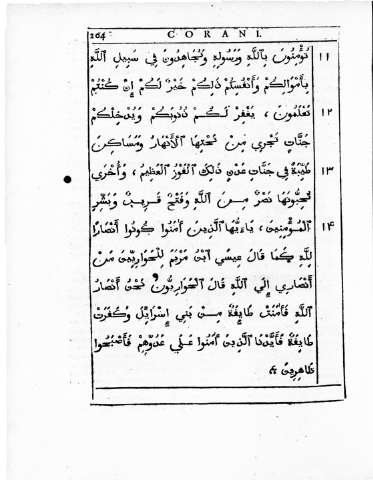 264 CORANI.
١١ تُؤْمِنُونَ بِاللَّهِ وَرَسُولِهِ وَتُجَاهِدُونَ فِي سَبِيلِ اللَّهِ
بِأَمْوَالِكُمْ وَأَنْفُسِكُمْ ذَلِكُمْ خَيْرٌ لَكُمْ إِنْ كُنْتُمْ
١٢ تَعْلَمُونَ ، يَغْفِرْ لَكُمْ ذُنُوبَكُمْ وَيُدْخِلْكُمْ
جَنَّاتٍ تَجْرِي مِنْ تَحْتِهَا الْأَنْهَارُ وَمَسَاكِنَ
١٣ طَيِّبَةً فِي جَنَّاتِ عَدْنٍ ذَلِكَ الْفَوْزُ الْعَظِيمُ ، وَأُخْرَي
تُحِبُّونَهَا نَصْرٌ مِنَ اللَّهِ وَفَتْحٌ قَرِيبٌ وَبَشِّرِ
١۴ الْمُؤْمِنِينَ ، يَاءَيُّهَا الَّذِينَ اٰمَنُوا كُونُوا أَنْصَارًا
لِلَّهِ كَمَا قَالَ عِيسَي اَبْنُ مَرْيَمَ لِلْحَوَارِيِّينَ مَنْ
أَنْصَارِي إِلَي اللَّهِ قَالَ الْحَوَارِيُّونَ نَحْنُ أَنْصَارُ
اللَّهِ فَاٰمَنَتْ طَايِفَةٌ مِنْ بَنِي إِسْرَايِلَ وَكَفَرَتْ
طَايِفَةٌ فَأَيَّدْنَا الَّذِينَ اٰمَنُوا عَلَي عَدُوِّهِمْ فَأَصْبَحُوا
ظَاهِرِينَ